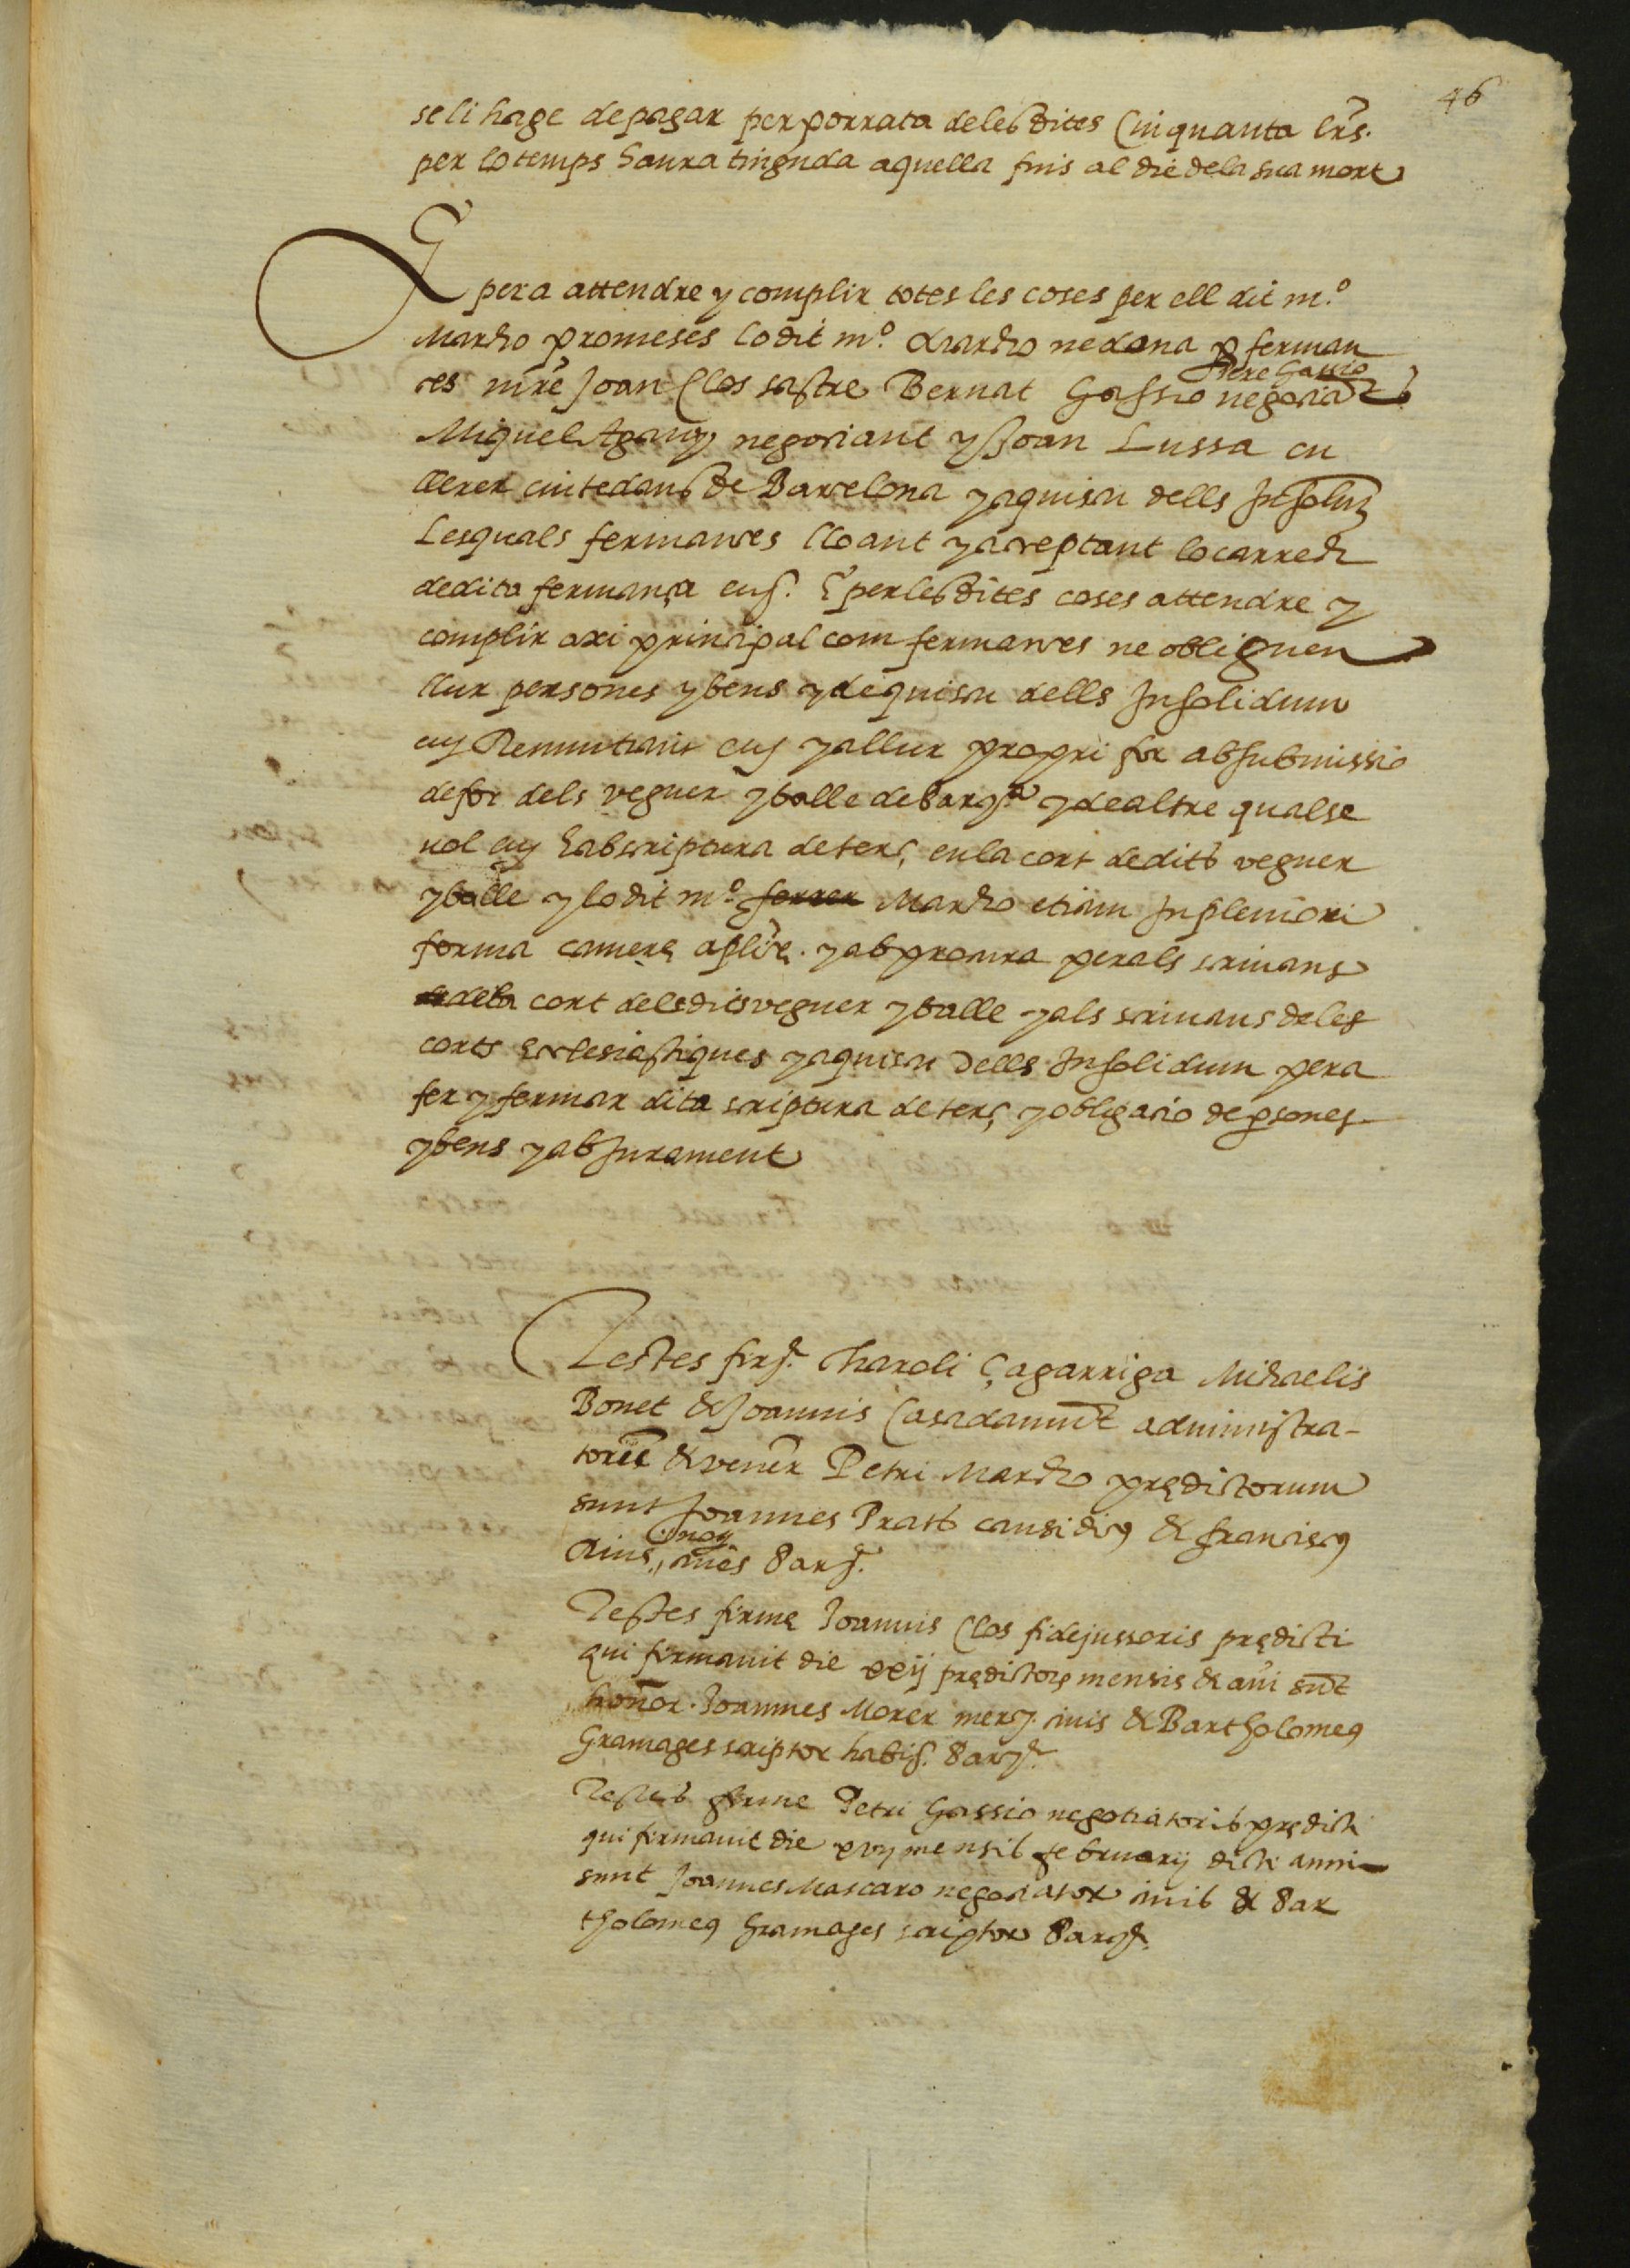 46
se li hage de pagar per porrata de les dites Cinquanta lrs.
per lo temps haura tinguda aquella fins al die de la sua mort
E pera attendre y complir totes les coses per ell dit m.º
Marcho promeses lo dit m.º Marcho ne dona p ferman
ces mre Joan Clos sastre Bernat Gassio negociat
Pere Gassio
Miquel negociant y Joan Lussa cu
llerer ciutedans de Barcelona y a quiscu dells Insolm
Les quals fermances lloant y acceptant lo carrech
de dita fermança eus. E per les dites coses attendre y
complir axi principal com fermances ne obliguen
llur persones y bens y de quiscu dells Insolidum
eus Renuntiant eus y a llur propri for ab submissio
de for dels veguer y balle de Barna y de altre qualse
uol eus E ab scriptura de terç en la cort de dits veguer
y balle y lo dit m.º ferrer Marcho etiam In pleniori
forma camerę aplicę. y ab procura per als scriuans
de la cort dels dits veguer y balle y als scriuans de les
corts Ecclesiastiques y a quiscu dells Insolidum pera
fer y fermar dita scriptura de terç y obligacio de psones
y bens y ab Jurament
Testes firę. Charoli Çagarriga Michaelis
Bonet & Joannis Casadamunt administra-
torū & vener Petri Marcho prędictorum
sunt Joannes Prats causidicq & franciscq
noy
ciues Barę.
Testes firmę Joannis Clos fidejussoris prędicti
qui firmauit die xxij prędictorę mensis & ani sunt
honor. Joannes Morer merc. ciuis & Bartholomeq
Gramages scriptor habis. Barę.
Testes firme Petri Gassio negotiatoris prędicti
qui firmauit die xvij mensis february dicti anni
sunt Joannes Mascaro negociator ciuis & Bar
tholomeq Gramages scriptor Barę.